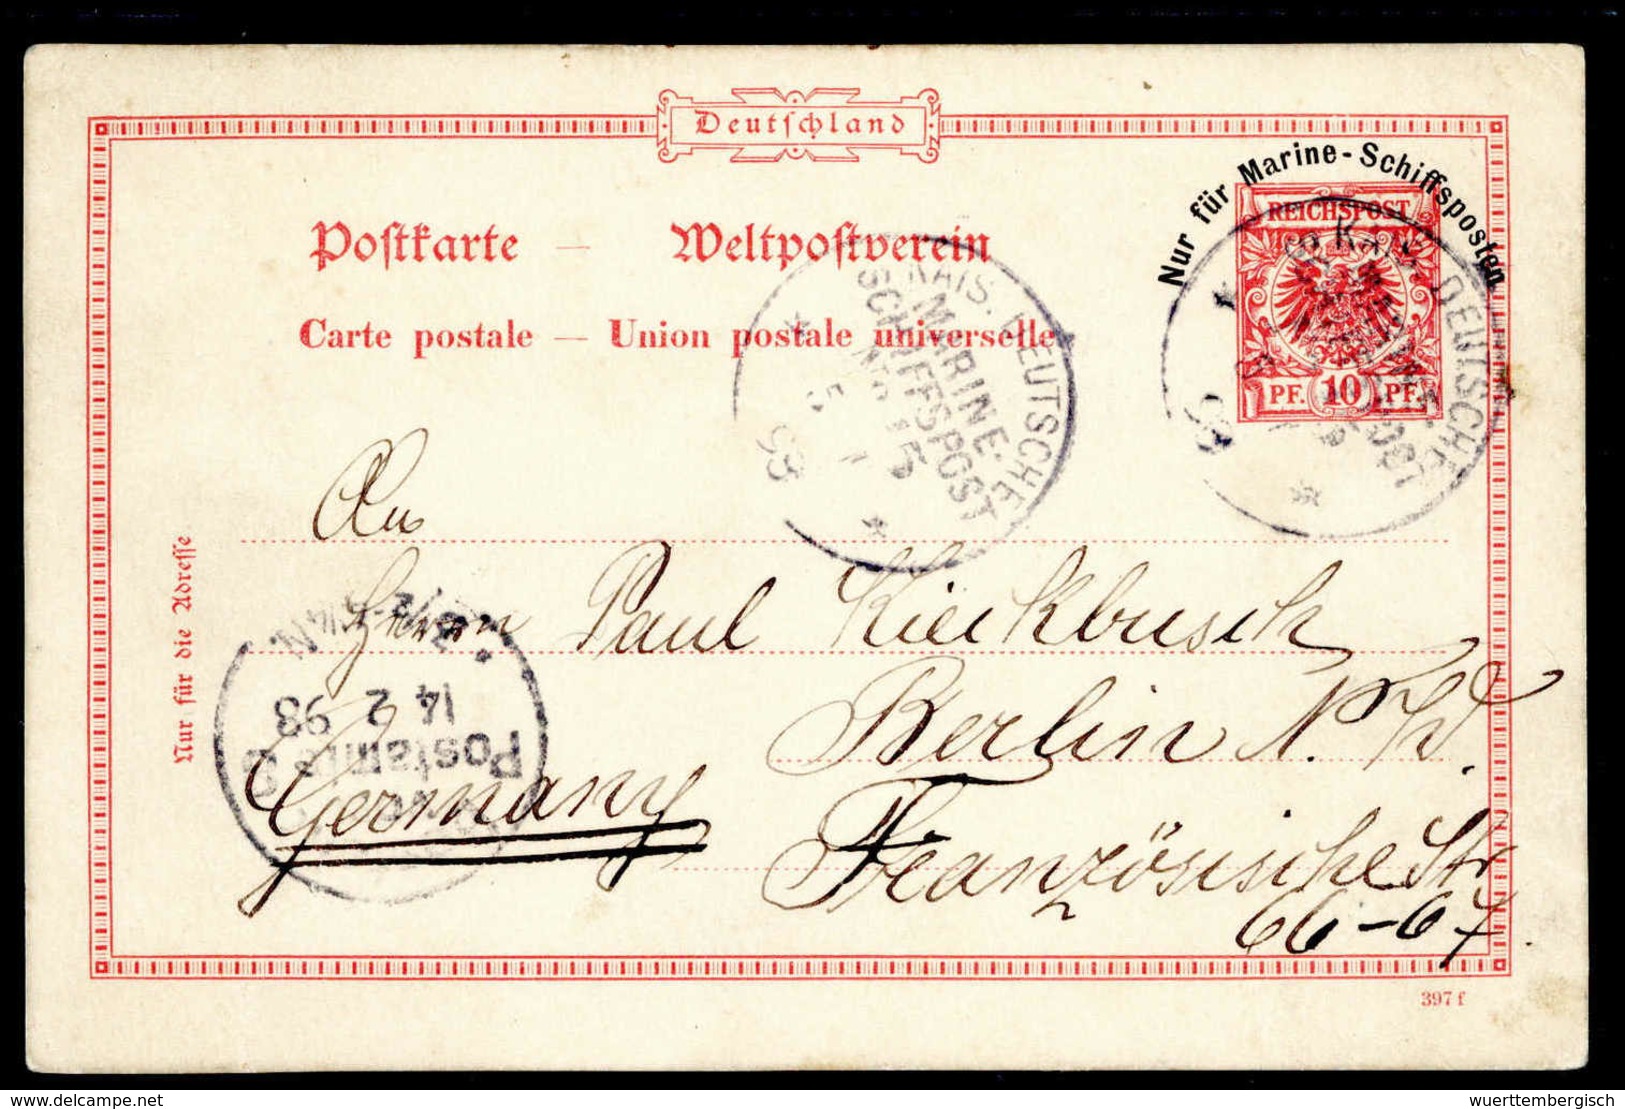 Deutschland
Nur für Marine-Schiffsposten
REICHSPOST
PF. 10 PF.
Postkarte — Weltpostverein
Carte postale — Union postale universelle
KAIS. DEUTSCHE
MARINE-
SCHIFFSPOST
No 15
5 1
93
KAIS. DEUTSCHE
93
An
Herrn Paul Kieckbusch
Berlin N. W.
Germany
Französische Str
66-67
Nur für die Adresse
Postamt
14 2 93
397 f
delcampe.net
wuerttembergisch